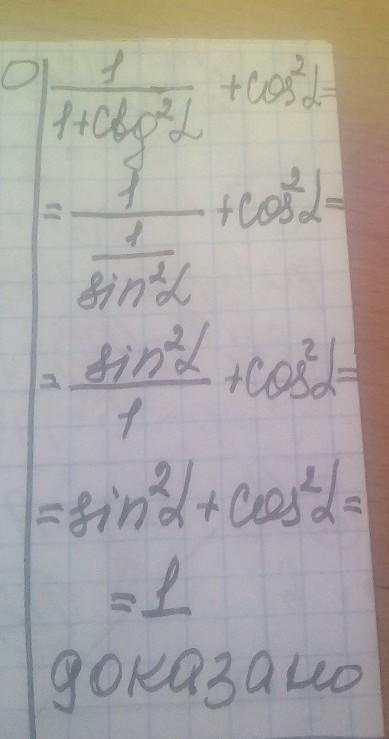 1/(1+ctg²α) + cos²α =
= 1/(1/sin²α) + cos²α =
= sin²α/1 + cos²α =
= sin²α + cos²α =
= 1
доказано